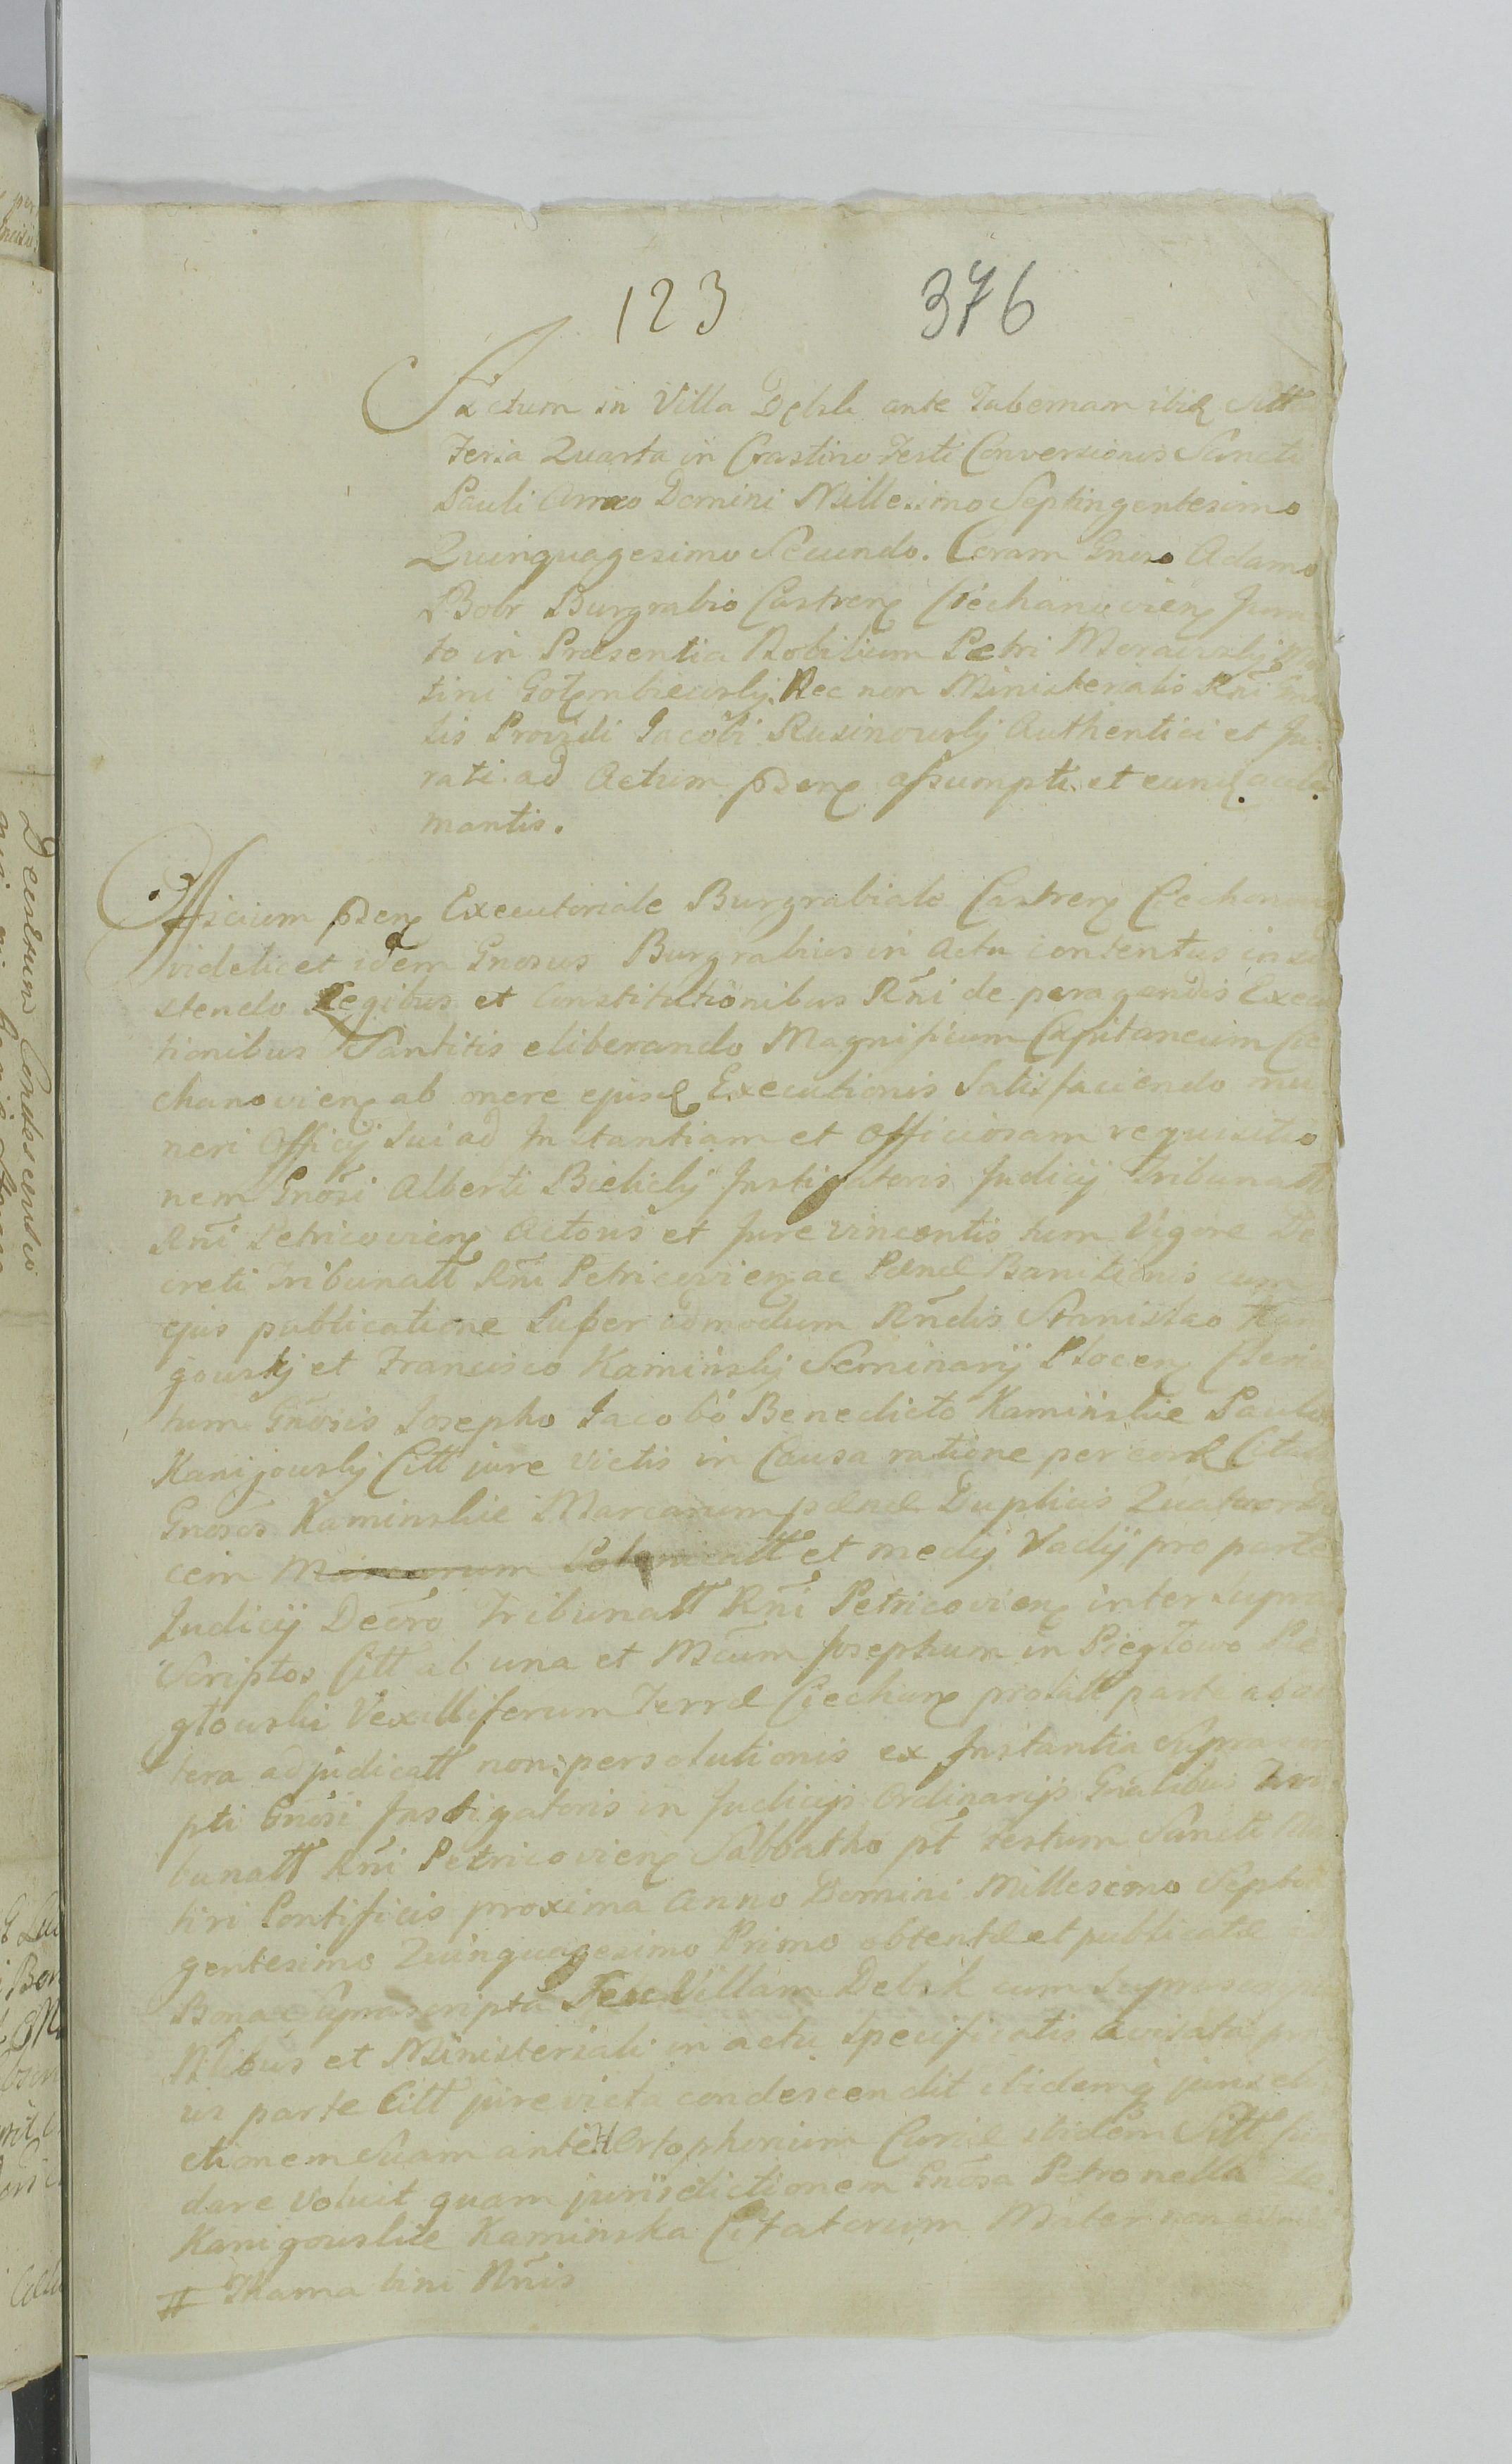 123 376
Actum in Villa Dębsk ante Tabernam ibid Sitt
Feria Quarta in Crastino Festi Conversionis Sancti
Pauli Anno Domini Millesimo Septingentesimo
Quinquagesimo Secundo. Coram Gnoso Adamo
Bobr Burgrabio Castren Ciechanovien Jura
to in Præsentia Nobilium Petri Morawsky,
tini Gołembiewsky. Nec non Ministerialis Rni Gna
lis Providi Jacobi Rusinowsky Authentici et Ju
rati ad Actum psen assumpti et eund
mantis.
Officium psen Executoriale Burgrabiale Castren Ciechanov
videlicet idem Gnosus Burgrabius in Actu contentus insi
stendo Legibus et Constitutionibus Rni de peragendis Execu
tionibus Sancitis eliberando Magnificum Capitaneum Cie
chanovien ab onere ejusd Executionis Satisfaciendo mu
neri Officij Sui ad Instantiam et Officiosam requisitio
nem Gnosi Alberti Bielicky Instigatoris Judicij Tribunatt
Rni Petricovien Actoris et Jure vincentis tum Vigore De
creti Tribunatt Rni Petricovien ac Pænæ Banitionis cum
ejus publicatione Super admodum Rndis Stanislao Kani
gowsky et Francisco Kaminsky Seminarij Plocen Cleri
tum Gnosis Josepho Jacobo Benedicto Kaminskie Paulo
Kanigowsky Citt jure victis in Causa ratione per eosd Citat
Gnosos Kaminskie Marcarum pænæ Duplicis Quatuorde
cem Marcarum Polonicatt et medij Vadij pro parte
Judicij Decro Tribunatt Rni Petricovien inter Supra
Scriptos Citt ab una et Mcum Josephum in Pięgłowo Pię
głowski Vexilliferum Terræ Ciechan prolatt parte ab al
tera adjudicatt non persolutionis ex Instantia Suprascri
pti Gnosi Instigatoris in Judicijs Ordinarijs Gnalibus Tri
bunatt Rni Petricovien Sabbatho pt Festum Sancti Mar
tini Pontificis proxima Anno Domini Millesimo Septin
gentesimo Quinquagesimo Primo obtentæ et publicatæ ad
Bona Suprascripta Seu Villam Debsk cum Suprascrip
Nlibus et Ministeriali in actu Specificatis avisata pri
us parte Citt jure victa condescendit ibidemq juris di
ctionem Suam ante Curiæ ibidem Sitt fun
dare Voluit quam jurisdictionem Gnosa Petronella de
Kanigowskie Kaminska Citatorum Mater non admis
# Thama bini Rnis
Decretum Condescensio